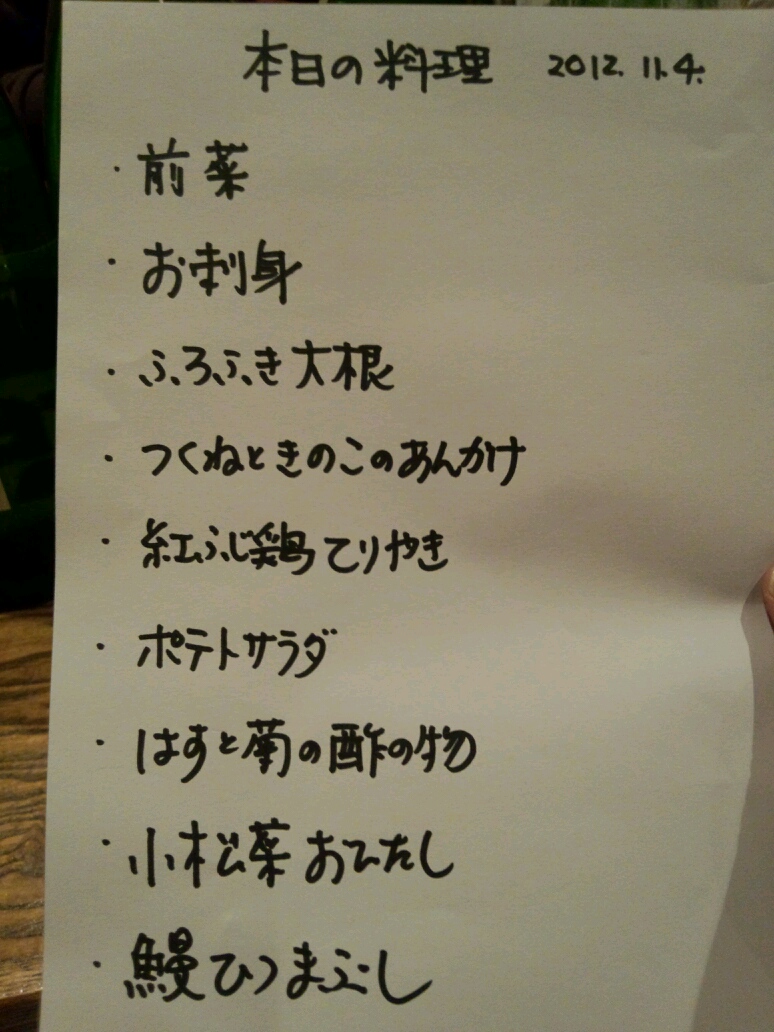 本日の料理 2012.11.4.
・前菜
・お刺身
・ふろふき大根
・つくねときのこのあんかけ
・紅ふじ鶏てりやき
・ポテトサラダ
・はすと菊の酢の物
・小松菜おひたし
・鰻ひつまぶし